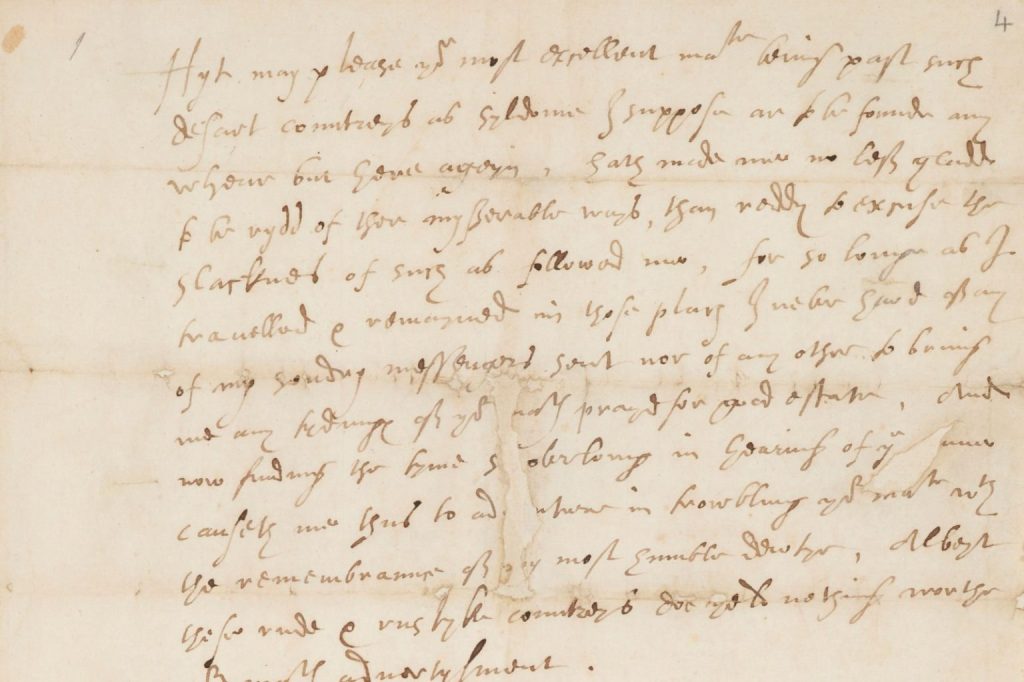 4
Hyt may please yor most excellent matie being past such
desart countreys as syldome I suppose ar to be founde any
whear but here ageyn, hath made me no less gladde
to be rydd of ther mysserable ways, than reddy to excuse the
slacknes of such as followed me, for so longe as I
travelled & remayned in those places I never hard of any
of my sondry messengers sent nor of any other to bring
me any tydings of yor maties prayed for good estate, And
now finding the tyme overlong in hearing of ye same
causeth me thus to adventure in trowbling yor matie wth
the remembrance of my most humble dewtye, Albeyt
these rude & rustyke countreys doe yeld nothing worthe
advertysment.